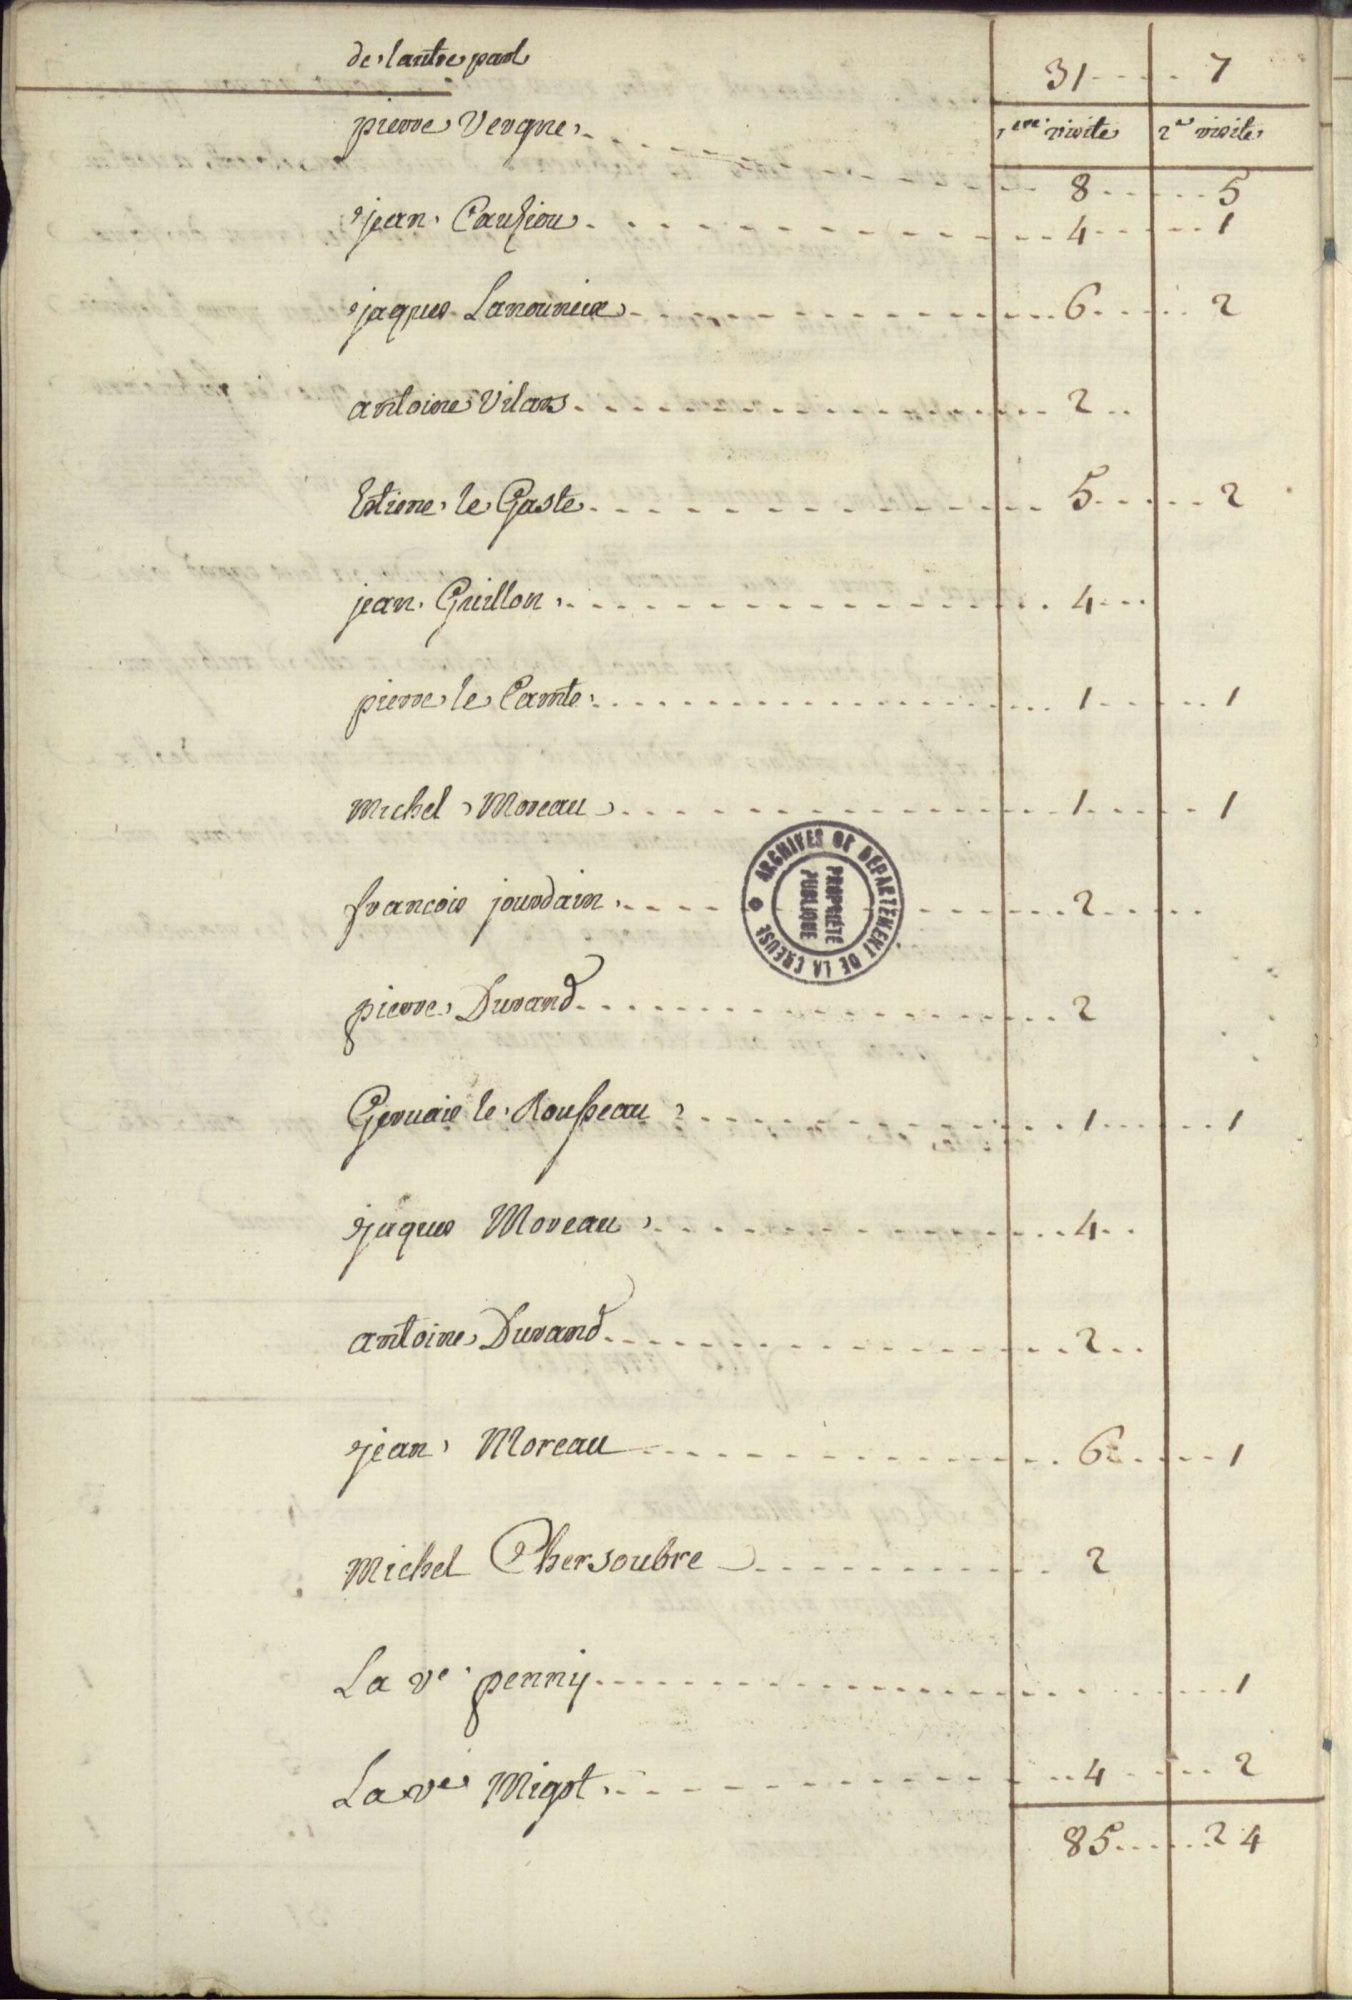 de lautre part 31 7
1ere visite 2e visite
pierre Vergne 8 5
jean Cauziou 4 1
jaques Lanouneix 6 2
antoine Vilars 2
Estiene le Gaste 5 2
jean Guillon 4
pierre le Camte 1 1
Michel Moreau 1 1
francois jourdain 2
pierre Durand 2
Gervais le Rousseau 1 1
jaques Moreau 4
antoine Durand 2
jean Moreau 6 1
Michel Chersoubre 2
La ve penny 1
La ve Migot 4 2
85 24
ARCHIVES DE DÉPARTEMENT DE LA CREUSE
PROPRIÉTÉ
PUBLIQUE